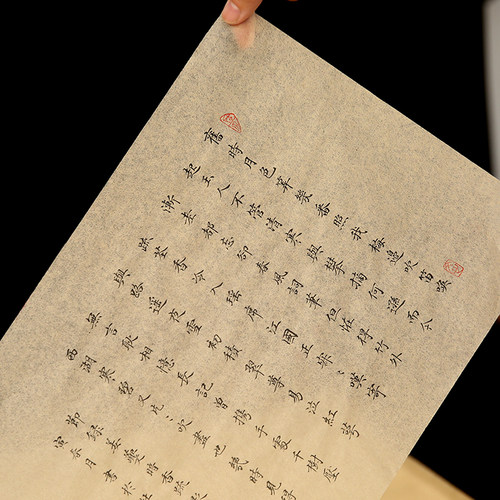 舊時月色算幾番照我梅邊吹笛喚
起玉人不管清寒與攀摘何遜而今
漸老都忘卻春風詞筆但怪得竹外
疎花香冷入瑤席江國正寂〻嘆寄
與路遙夜雪初積翠尊易泣紅萼
無言耿相憶長記曾攜手處千樹壓
西湖寒碧又片〻吹盡也幾時見得
節錄姜夔暗香疎
寅春月書於